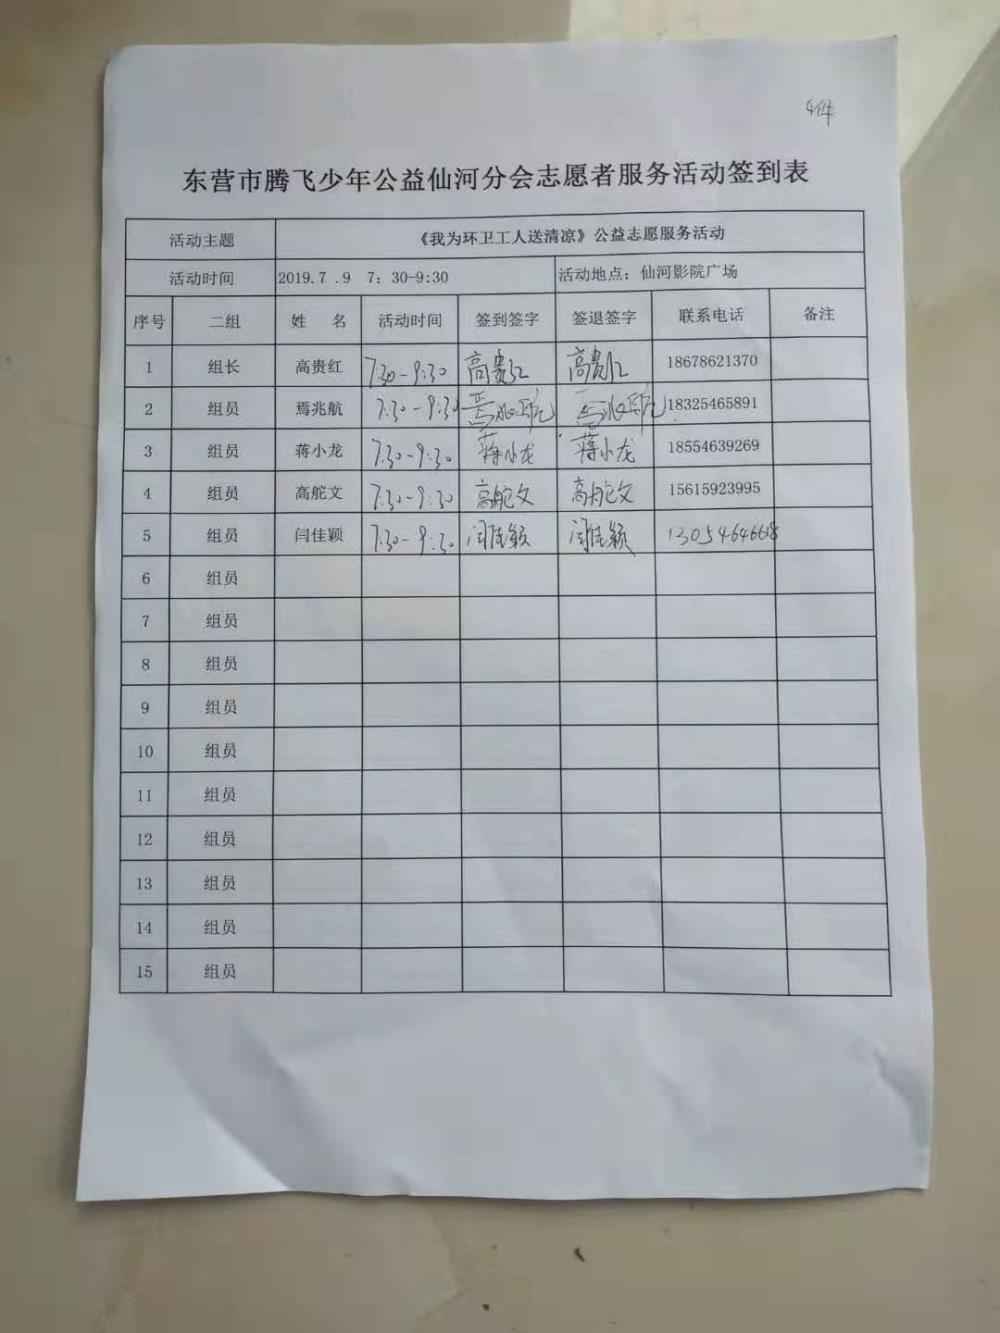 4件
东营市腾飞少年公益仙河分会志愿者服务活动签到表
活动主题 《我为环卫工人送清凉》公益志愿服务活动
活动时间 2019.7 .9 7：30-9:30 活动地点：仙河影院广场
序号 二组 姓 名 活动时间 签到签字 签退签字 联系电话 备注
1 组长 高贵红 7:30-9:30 高贵红 高贵红 18678621370
2 组员 焉兆航 7:30-9:30 焉兆航 焉兆航 18325465891
3 组员 蒋小龙 7:30-9:30 蒋小龙 蒋小龙 18554639269
4 组员 高舵文 7:30-9:30 高舵文 高舵文 15615923995
5 组员 闫佳颖 7:30-9:30 闫佳颖 闫佳颖 13054646618
6 组员
7 组员
8 组员
9 组员
10 组员
11 组员
12 组员
13 组员
14 组员
15 组员